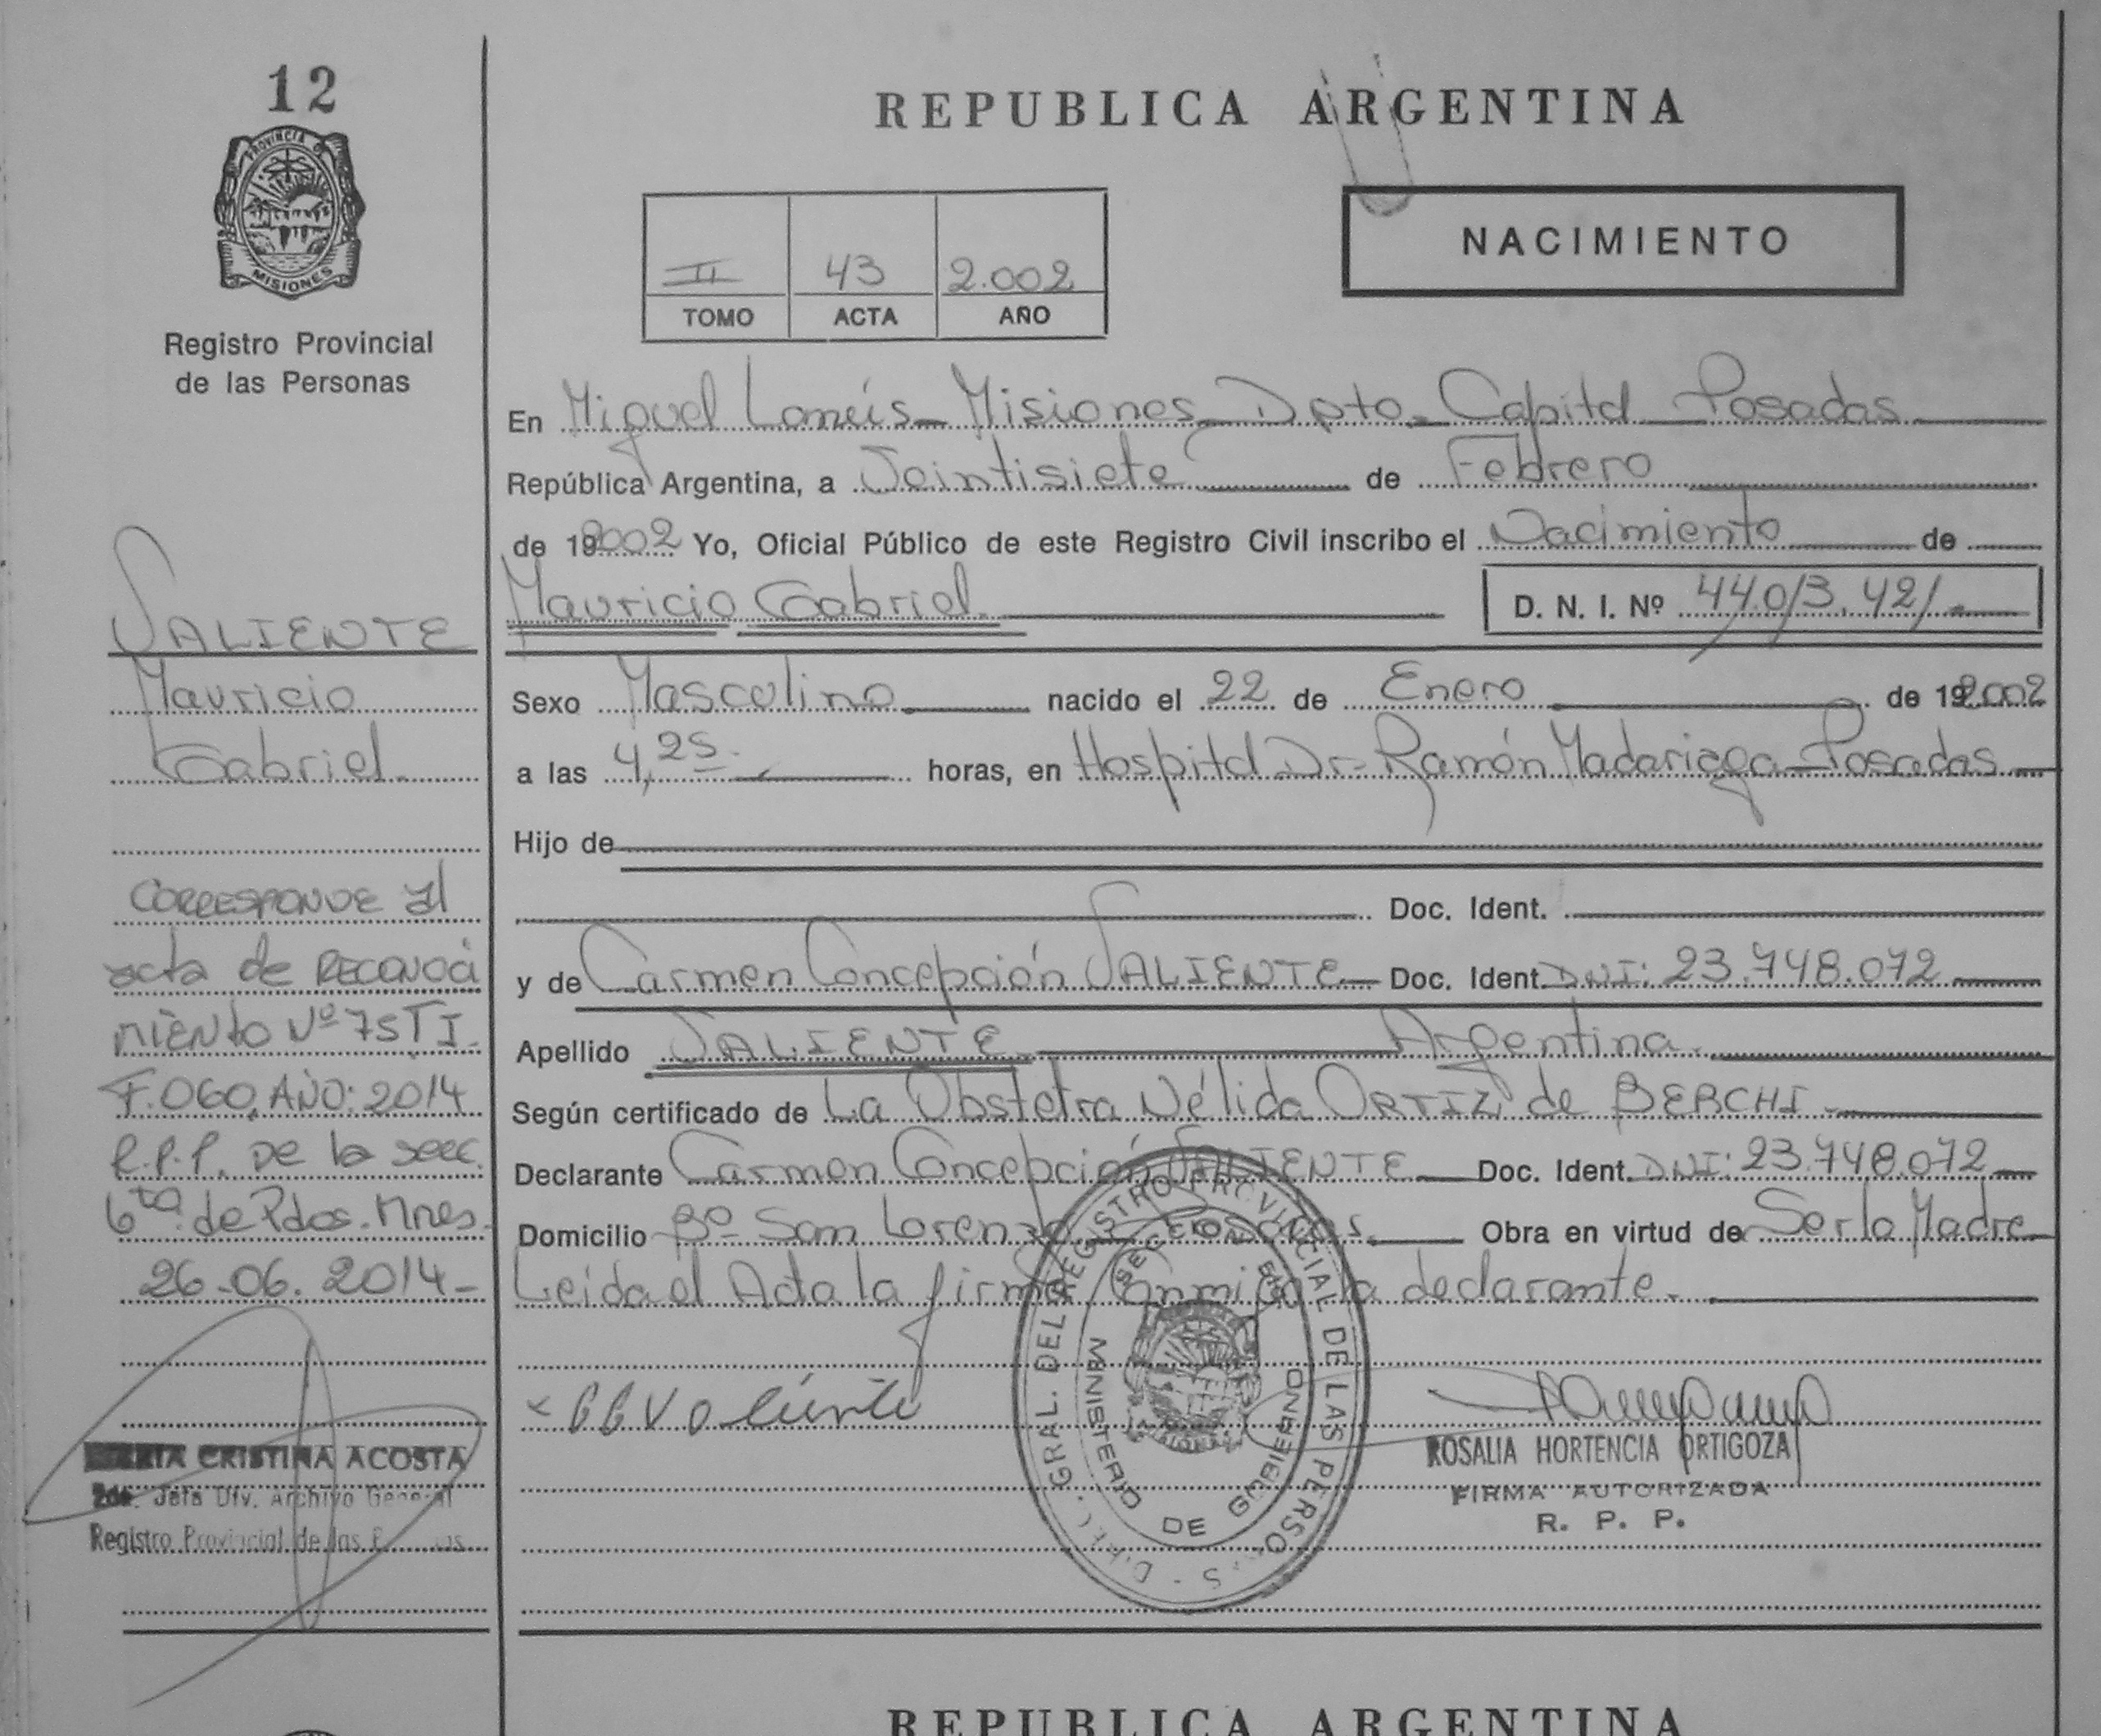 12
PROVINCIA D
MISIONES
Registro Provincial
de las Personas
REPUBLICA ARGENTINA
II 43 2.002
TOMO ACTA AÑO
NACIMIENTO
En Miguel Lanús Misiones Dpto. Capital Posadas
República Argentina, a Veintisiete de Febrero
de 192002 Yo, Oficial Público de este Registro Civil inscribo el Nacimiento de
Mauricio Gabriel. D. N. I. Nº 44.013.421
Sexo Masculino nacido el 22 de Enero de 192.002
a las 4,25 horas, en Hospital Dr. Ramón Madariaga Posadas
Hijo de
Doc. Ident.
y de Carmen Concepción VALIENTE Doc. Ident. DNI: 23.748.072
Apellido VALIENTE Argentina.
Según certificado de La Obstetra Nélida ORTIZ de BERCHI
Declarante Carmen Concepción VALIENTE Doc. Ident. DNI: 23.748.072
Domicilio Bº San Lorenzo Posadas. Obra en virtud de Ser la Madre
Leida el Acta la firma Conmigo la declarante.
VALIENTE
Mauricio
Gabriel
CORRESPONDE al
acta de RECONOCI
MIENTO Nº 75 T I.
F. 060, AÑO: 2014
R.P.P. De la secc.
6ta. de Pdas. Mnes.
26-06. 2014-
MARIA CRISTINA ACOSTA
2da. Jefa Div. Archivo General
Registro Provincial de las
DIREC. GRAL. DEL REGISTRO PROVINCIAL DE LAS PERSONAS
MINISTERIO DE GOBIERNO
ROSALIA HORTENCIA ORTIGOZA
FIRMA AUTORIZADA
R. P. P.
REPUBLICA ARGENTINA